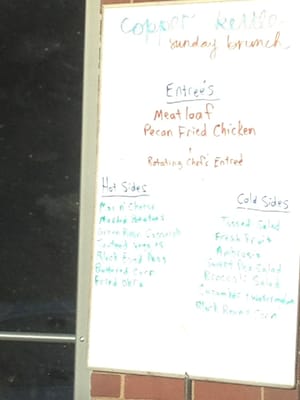 Copper Kettle
Sunday brunch
Entreé's
Meatloaf
Pecan Fried Chicken
Rotating Chef's Entreé
Hot Sides
Mac n' Cheese
Mashed Potatoes
Green Bean Casserole
Black Eyed Peas
Buttered Corn
Fried Okra
Cold Sides
Tossed Salad
Fresh Fruit
Ambrosia
Salad
Broccoli Salad
Cucumber Watermelon
Black Bean Corn